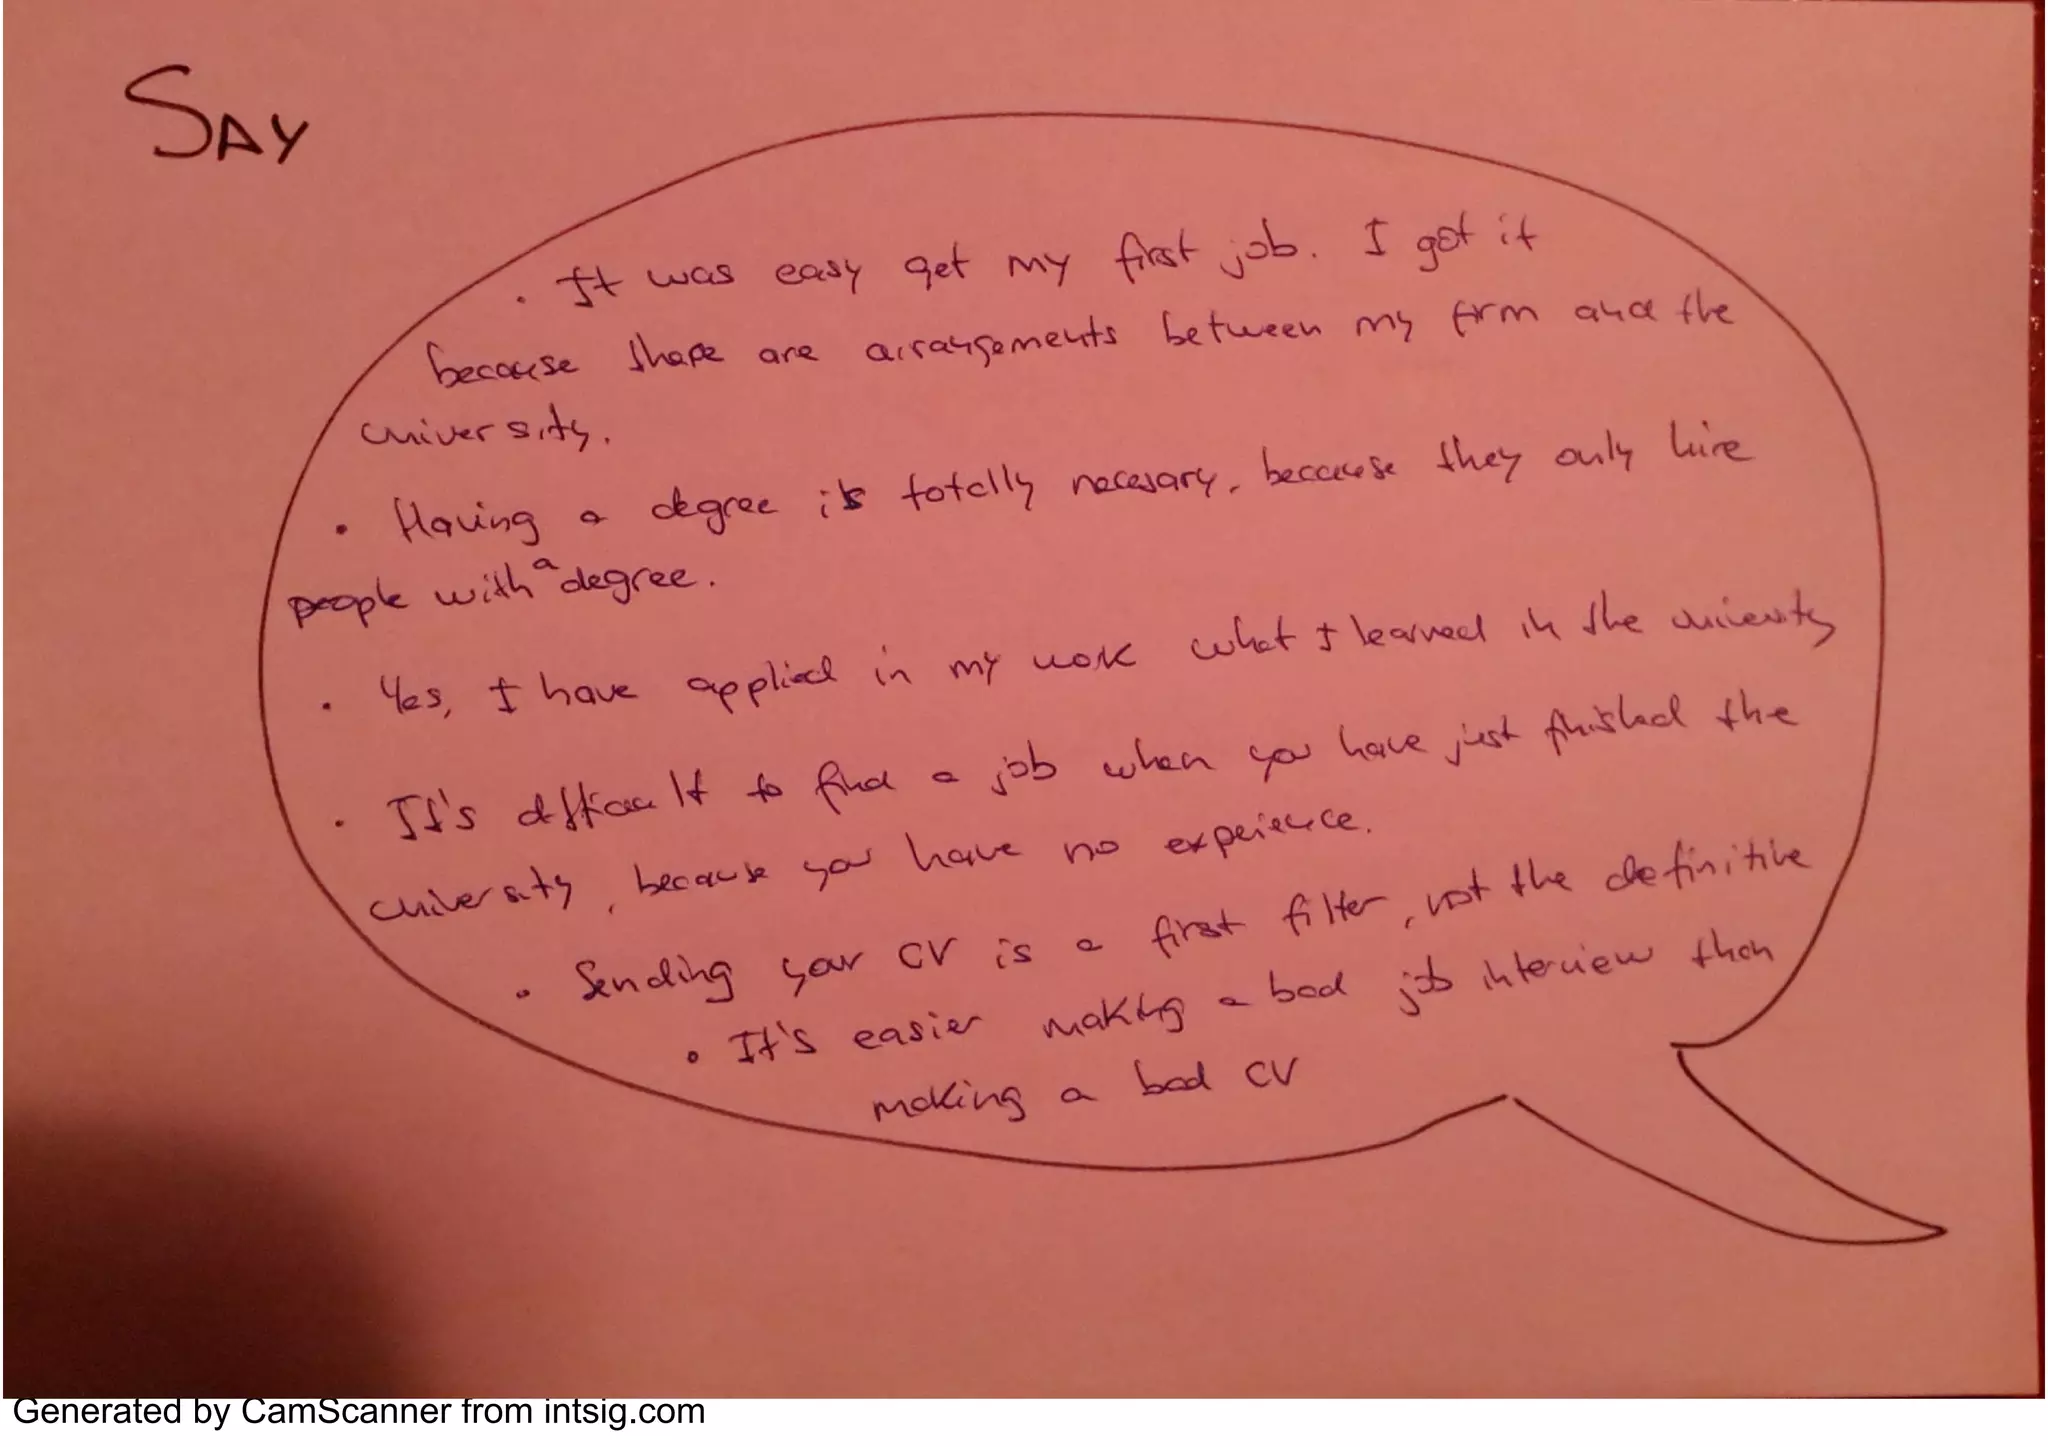 SAY
. It was easy get my first job. I got it
because there are arrangements between my firm and the
university.
. Having a degree is totally necesary, because they only hire
people with a degree.
. Yes, I have applied in my work what I learned in the university
. It's difficult to find a job when you have just finished the
university, because you have no experience.
. Sending your CV is a first filter, not the definitive
. It's easier making a bad job interview than
making a bad CV
Generated by CamScanner from intsig.com